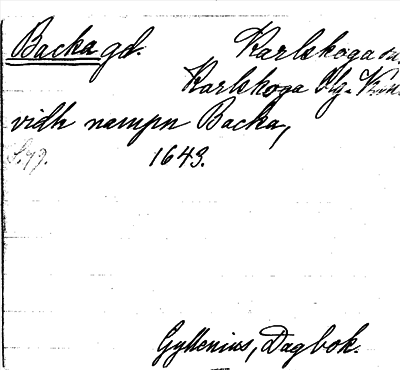 Backa gd. Karlskoga sn.
Karlskoga
vidh nampn Backa,
S. 49. 1643.
Gyllenius, Dagbok.